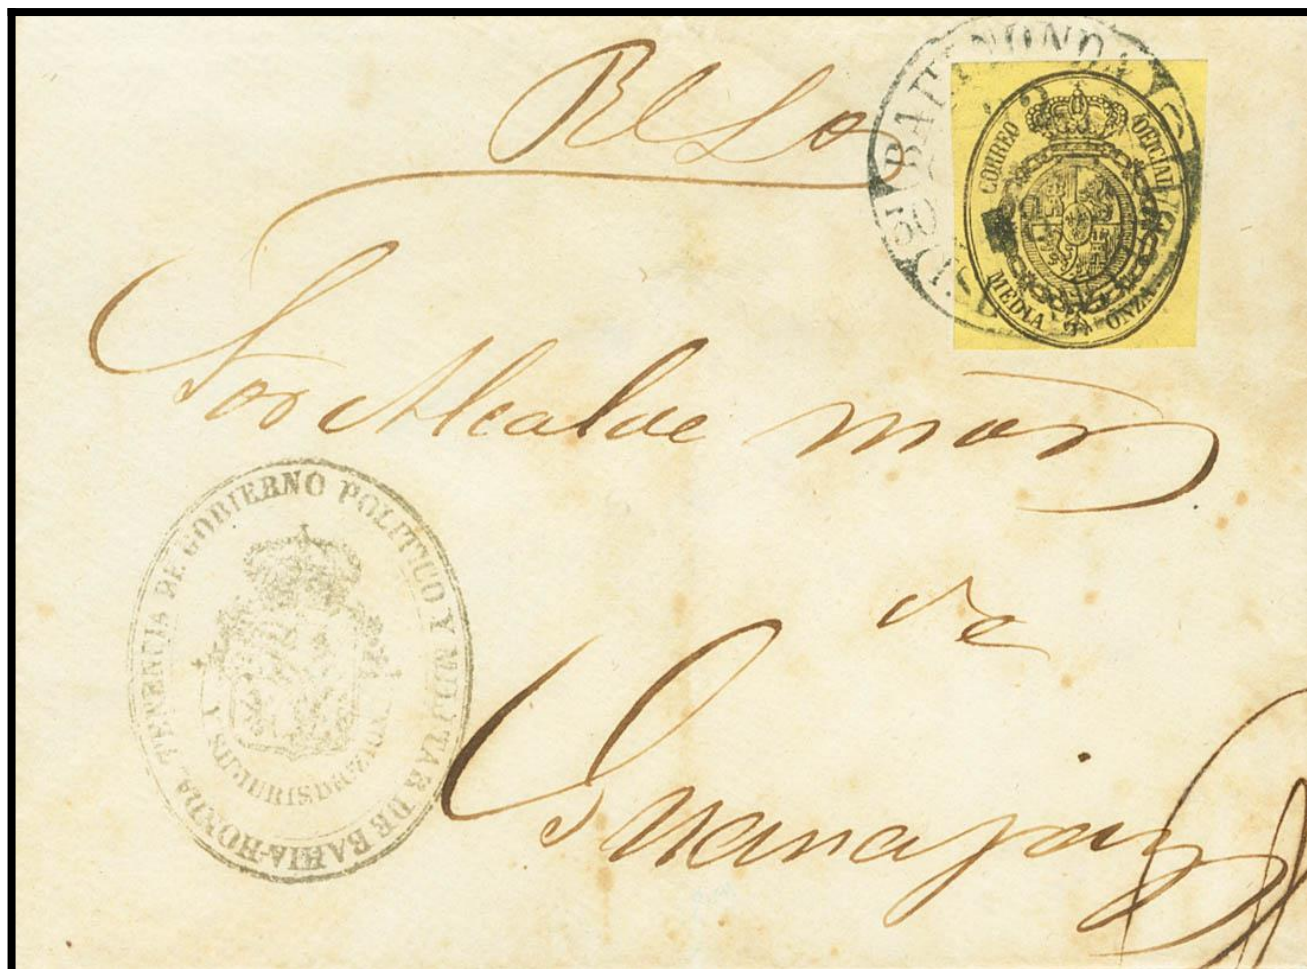 Rl So
CORREO OFICIAL
MEDIA ONZA
BAHIA HONDA
Sor Alcalde mor
de
Guanajay
TENENCIA DE GOBIERNO POLITICO Y MILITAR DE BAHIA-HONDA
Y SU JURISDICCION